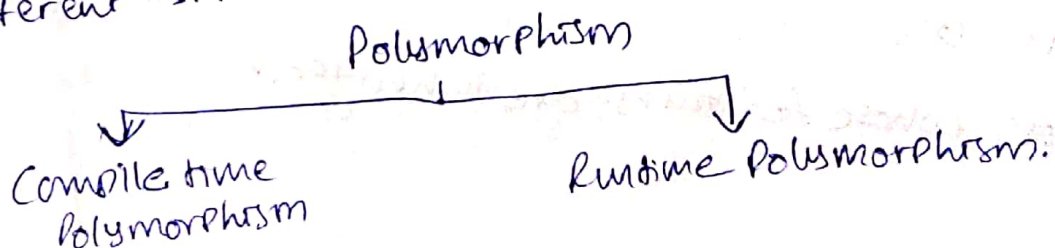 Polymorphism
Compile time
Polymorphism
Runtime Polymorphism.